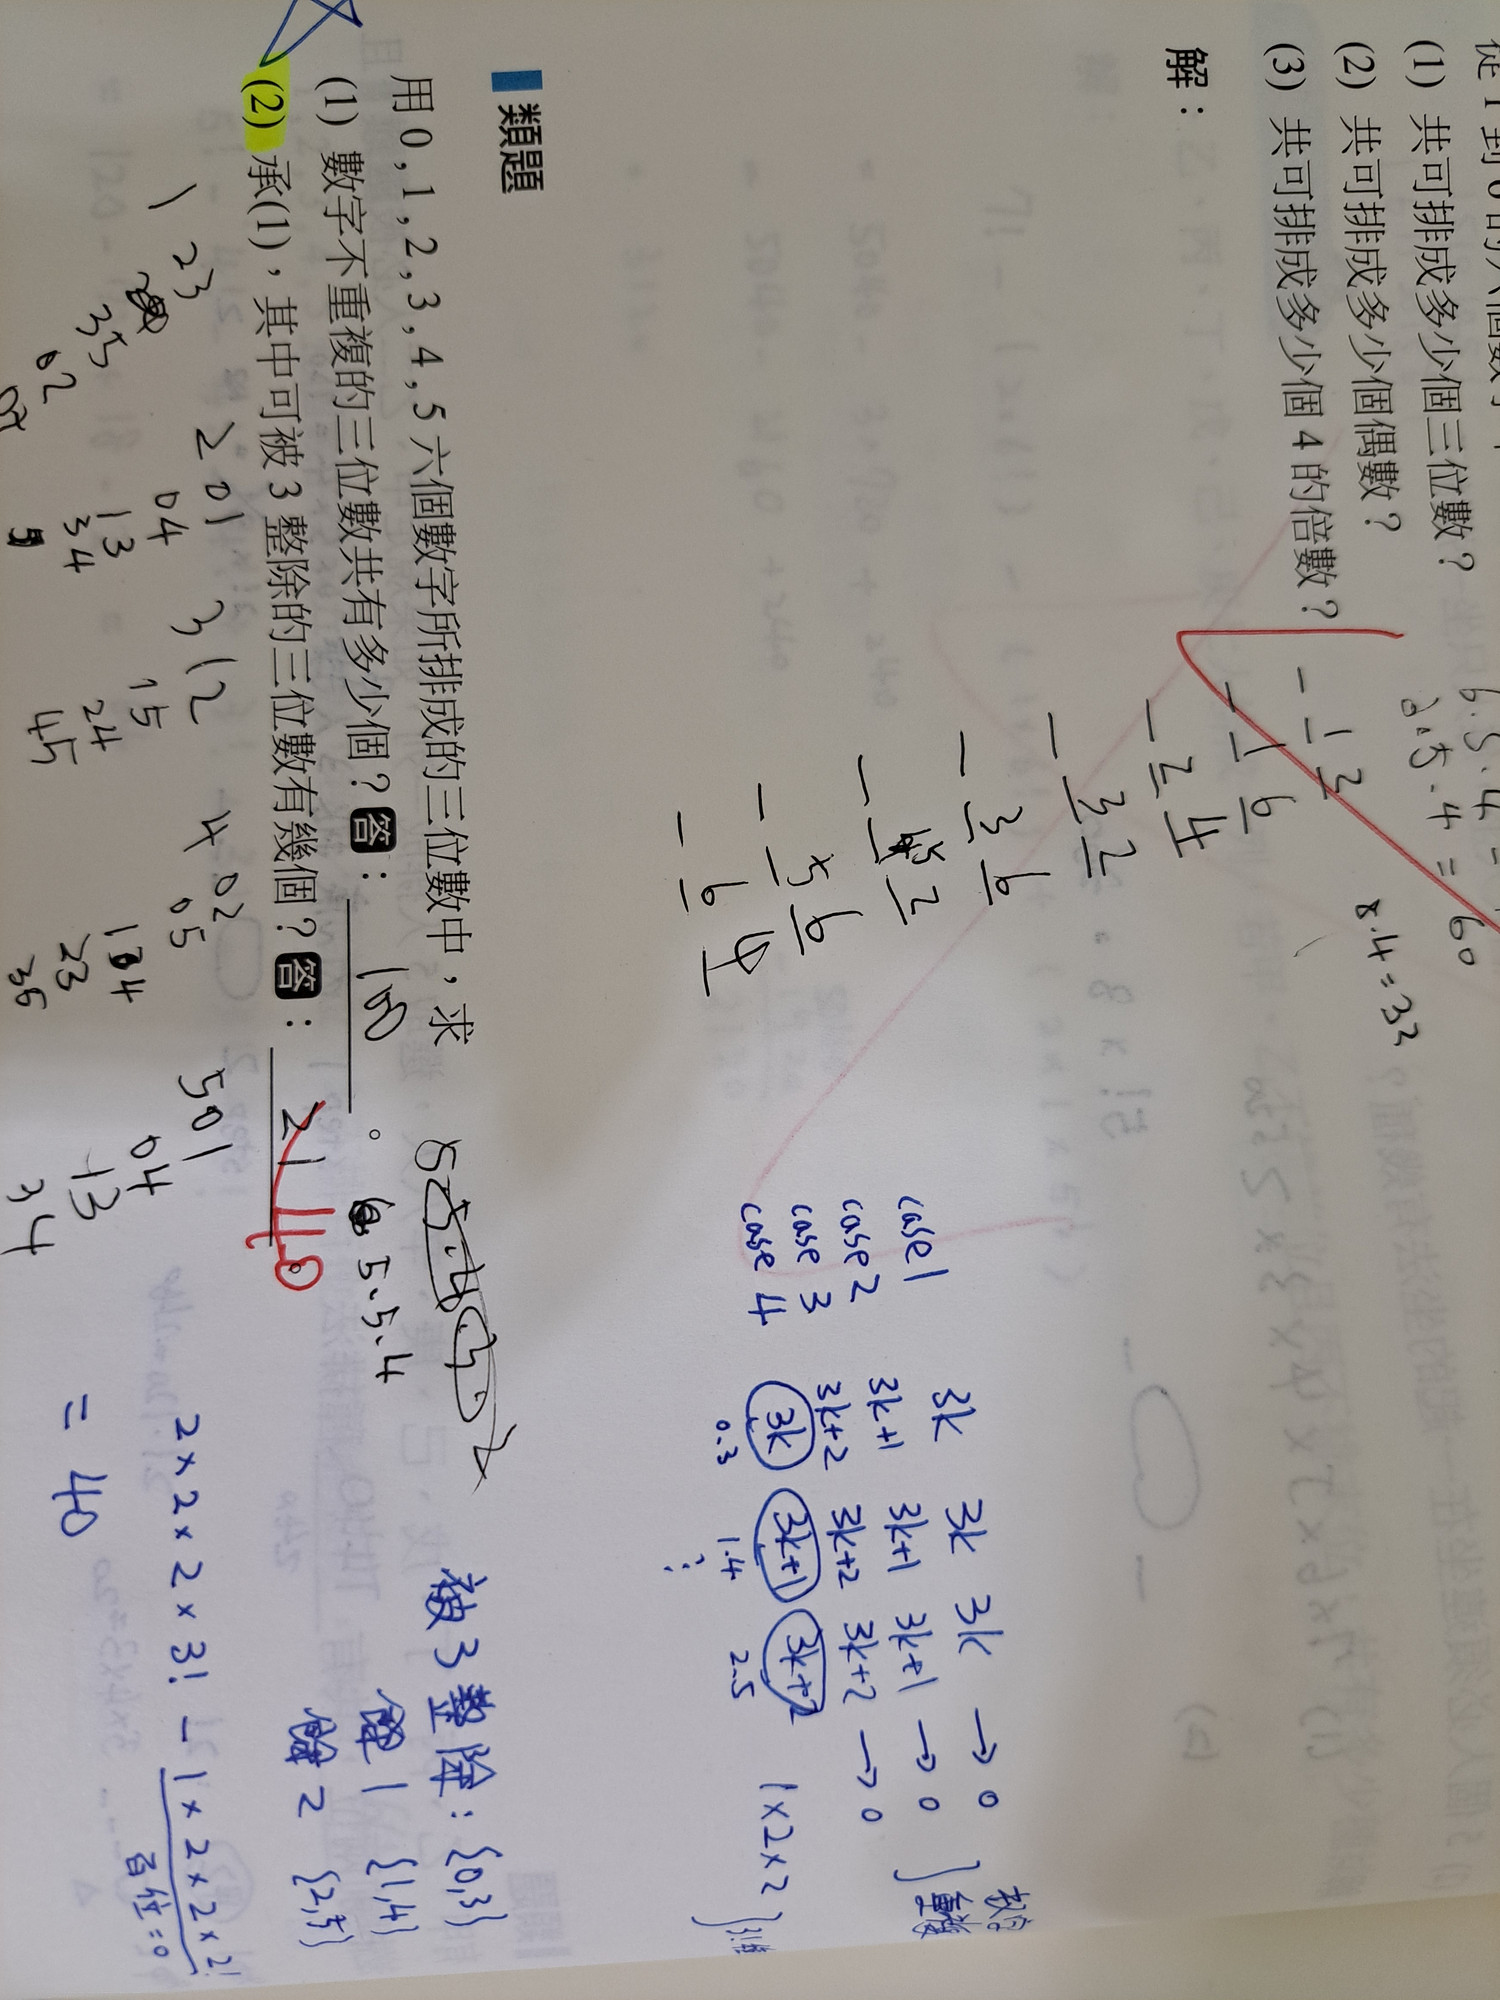 (1) 共可排成多少個三位數？
(2) 共可排成多少個偶數？
(3) 共可排成多少個 4 的倍數？
解：
6.5.4
3.5.4 = 60
8.4 = 32
- 1 2
- 1 6
- 2 4
- 3 2
- 3 6
- 5 2
- 5 6
- 6 4
case 1 3k 3k 3k → 0
case 2 3k+1 3k+1 3k+1 → 0
case 3 3k+2 3k+2 3k+2 → 0
數字重複
case 4 3k 3k+1 3k+2 1×2×2
0.3 1.4 2.5
類題
用 0 , 1 , 2 , 3 , 4 , 5 六個數字所排成的三位數中，求
(1) 數字不重複的三位數共有多少個？答： 100 。
5.5.4
(2) 承(1)，其中可被 3 整除的三位數有幾個？答： 21 40 。
被 3 整除：{0,3}
餘 1 {1,4}
餘 2 {2,5}
1 23
35
02
2 01
04
13
34
3 12
15
24
45
4 02
05
23
35
5 01
04
13
34
2×2×2×3! - 1×2×2×2!
百位=0
= 40